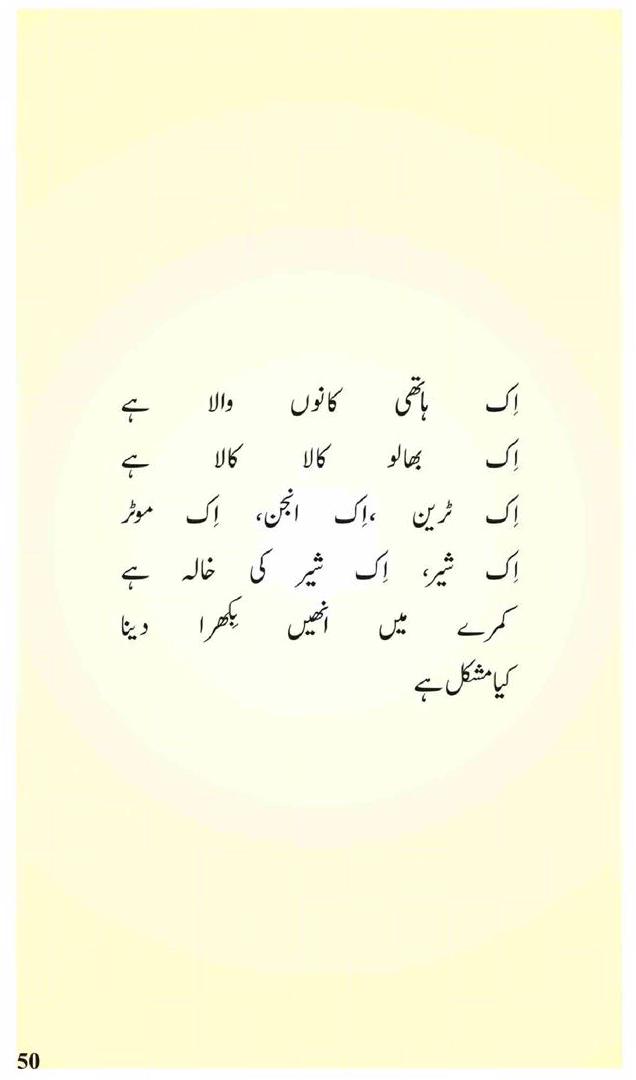 اِک ہاتھی کانوں والا ہے
اِک بھالو کالا کالا ہے
اِک ٹرین ،اِک انجن، اِک موٹر
اِک شیر، اِک شیر کی خالہ ہے
کمرے میں انھیں بِکھرا دینا
کیا مشکل ہے
50